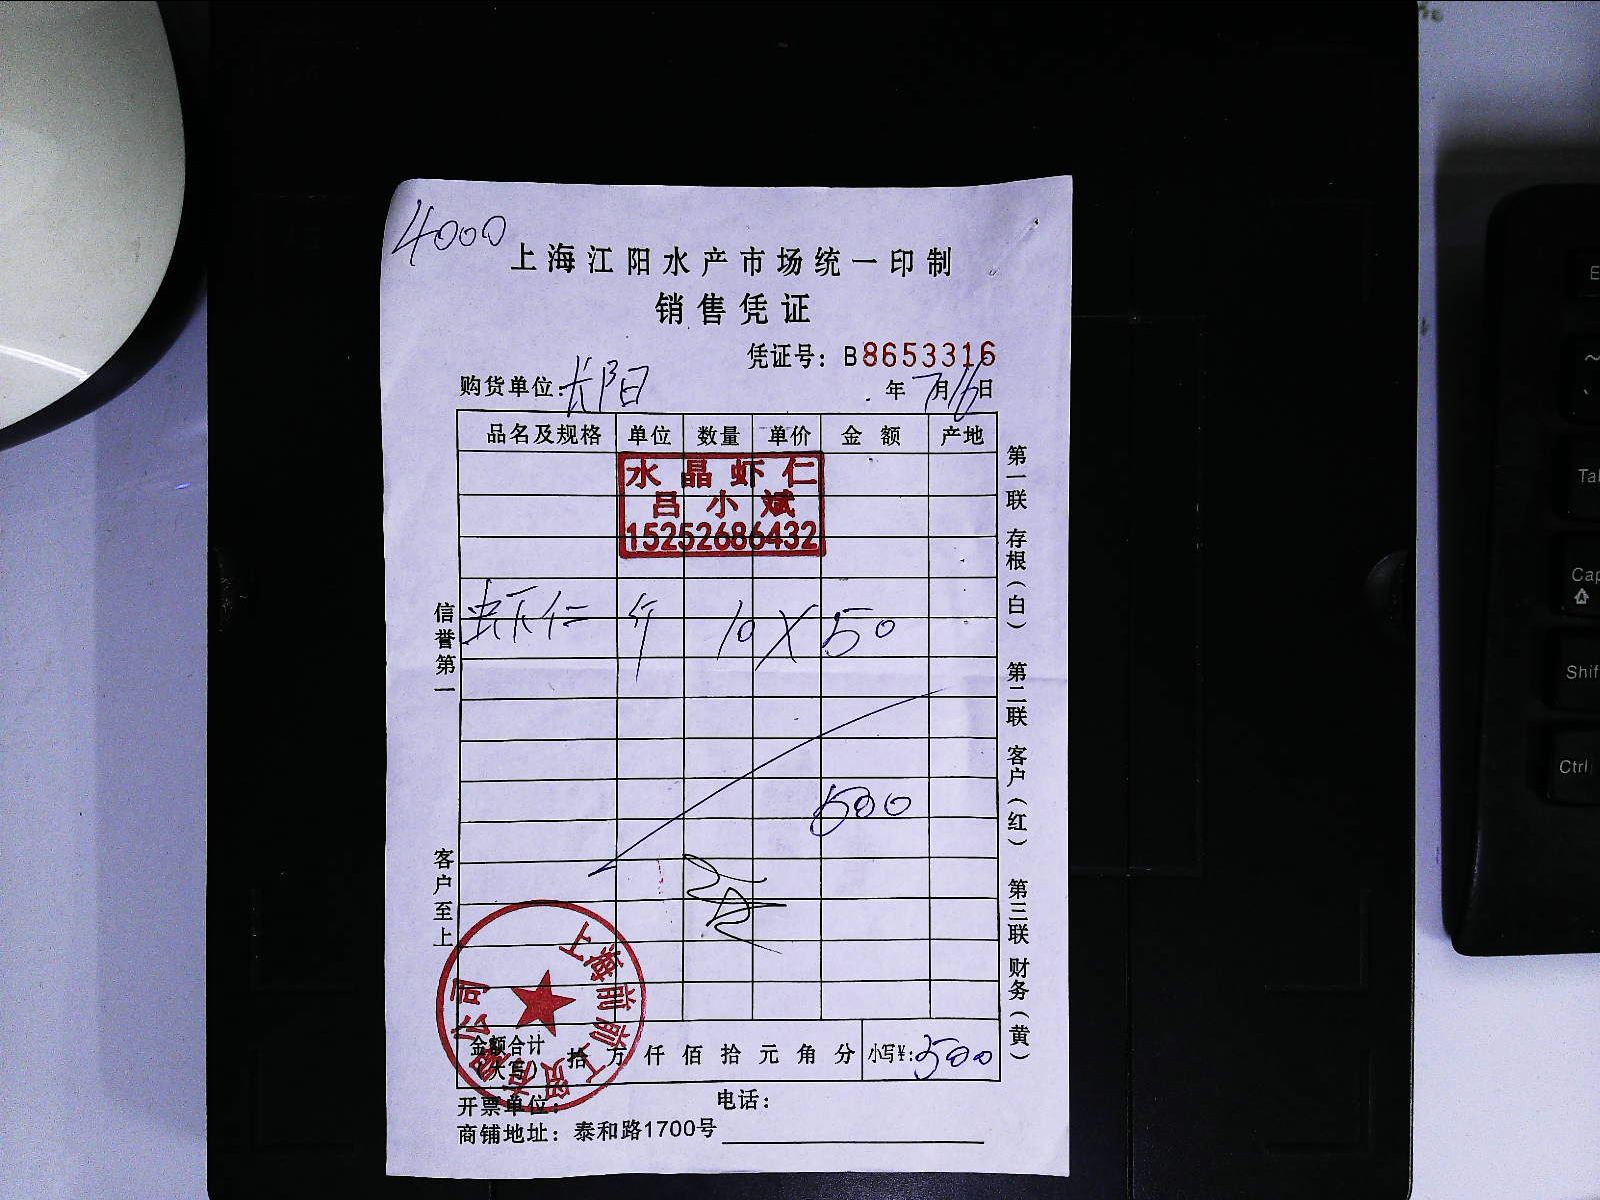 4000
上海江阳水产市场统一印制
销售凭证
凭证号：B8653316
购货单位：长阳 年 7月16日
品名及规格 单位 数量 单价 金额 产地
水晶虾仁
吕小斌
15252686432
虾仁 斤 10 X 50
500
信誉第一
客户至上
第一联 存根（白）
第二联 客户（红）
第三联 财务（黄）
上海前前工贸有限公司
金额合计（大写） 拾 万 仟 佰 拾 元 角 分 小写¥：500
开票单位： 电话：
商铺地址：泰和路1700号
E
~
`
Tab
Cap
Shif
Ctrl